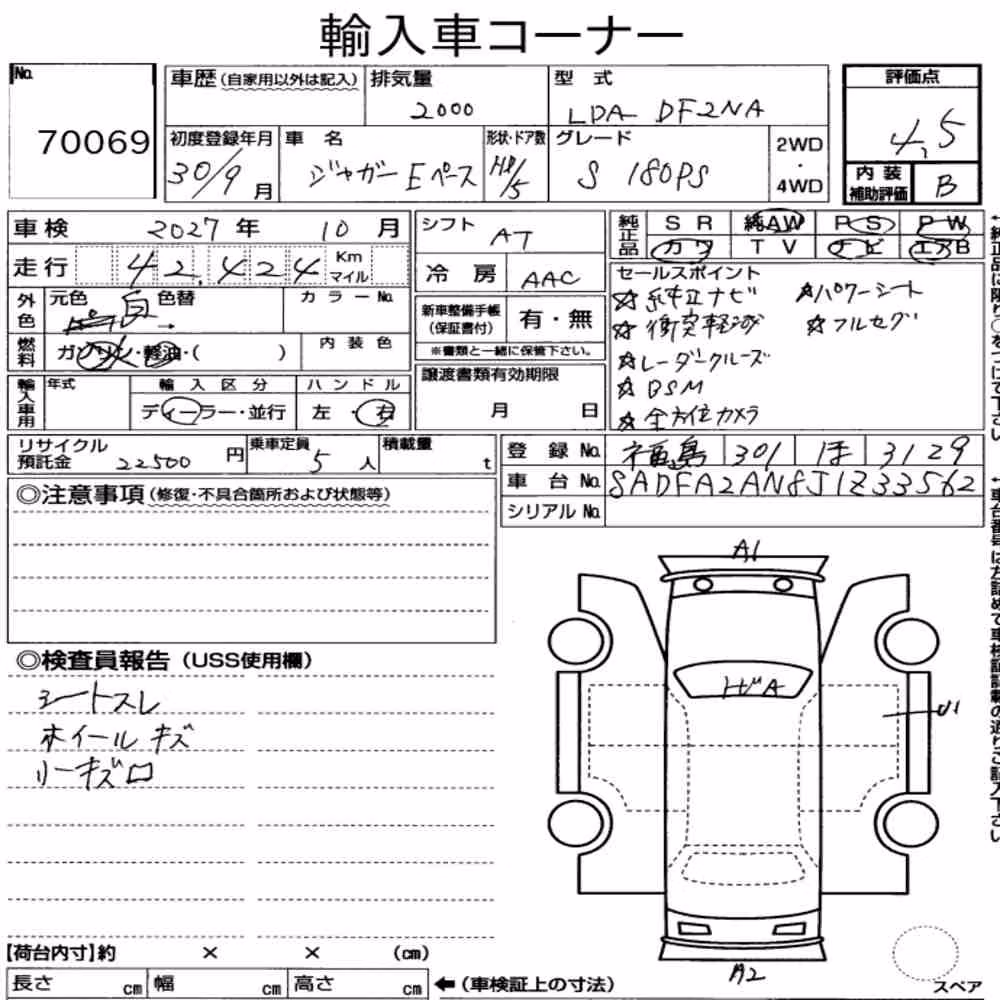 輸入車コーナー
No. 70069
車歴(自家用以外は記入) 排気量 2000 型式 LDA- DF2NA
評価点 4.5
初度登録年月 30/9月 車名 ジャガー Eペース 形状・ドア数 HB/5 グレード S 180PS 2WD・4WD
内装補助評価 B
車検 2027年 10月 シフト AT
純正品 SR 純AW PS PW
カワ TV ナビ エアB
走行 42,424 Km マイル 冷房 AAC
外色 元色 白 色替 → カラーNo.
新車整備手帳(保証書付) 有・無
※書類と一緒に保管下さい。
燃料 ガソリン・軽油・( ) 内装色
輸入車用 年式 輸入区分 ディーラー・並行 ハンドル 左・右
譲渡書類有効期限 月 日
セールスポイント
☆純正ナビ ☆パワーシート
☆衝突軽減 ☆フルセグ
☆レーダークルーズ
☆BSM
☆全方位カメラ
リサイクル預託金 22500円 乗車定員 5人 積載量 t
登録No. 福島 301 ほ 3129
車台No. SADFA2AN8J1Z33562
シリアルNo.
◎注意事項(修復・不具合箇所および状態等)
◎検査員報告(USS使用欄)
シートスレ
ホイールキズ
リーキズロ
A1
トビA
U1
A2
スペア
【荷台内寸】約 × × (cm)
長さ cm 幅 cm 高さ cm ←(車検証上の寸法)